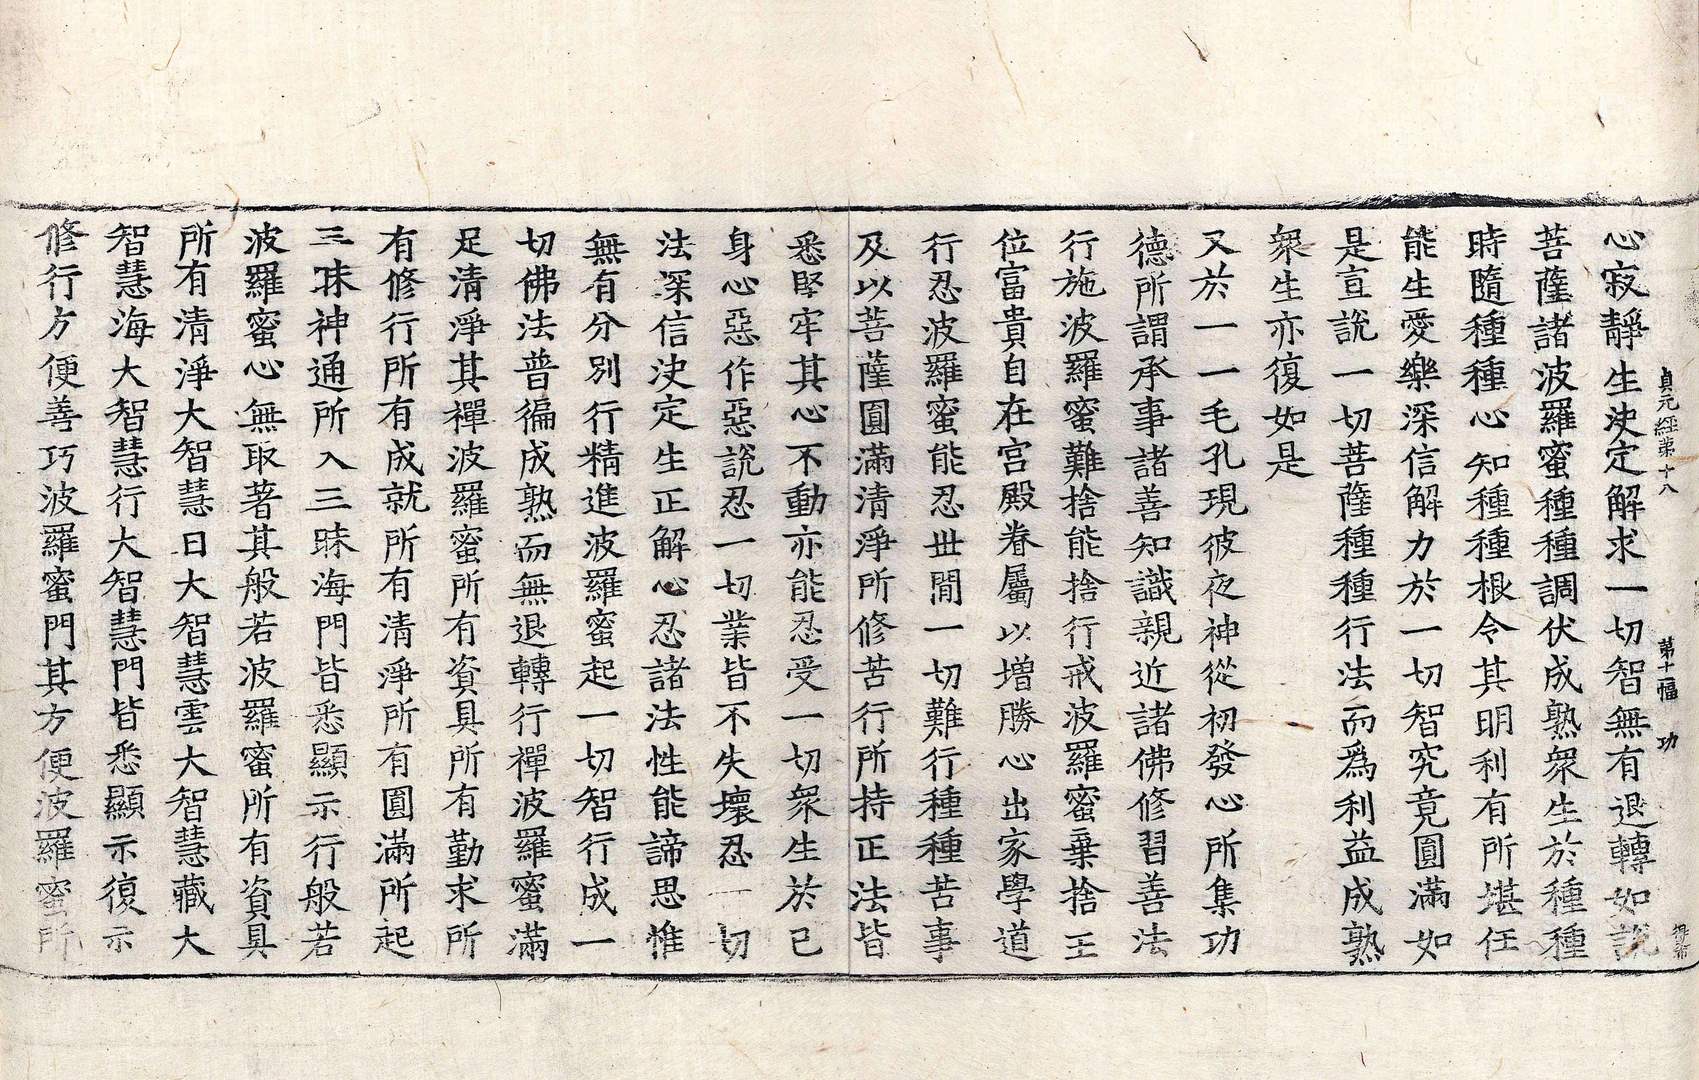 貞元經第十八　第十二幅　功
心寂靜生決定解求一切智無有退轉如說
菩薩諸波羅蜜種種調伏成熟衆生於種種
時隨種種心知種種根令其明利有所堪任
能生愛樂深信解力於一切智究竟圓滿如
是宣說一切菩薩種種行法而爲利益成熟
衆生亦復如是
又於一一毛孔現彼夜神從初發心所集功
德所謂承事諸善知識親近諸佛修習善法
行施波羅蜜難捨能捨行戒波羅蜜棄捨王
位富貴自在宮殿眷屬以增勝心出家學道
行忍波羅蜜能忍世間一切難行種種苦事
及以菩薩圓滿清淨所修苦行所持正法皆
悉堅牢其心不動亦能忍受一切衆生於己
身心惡作惡說忍一切業皆不失壞忍一切
法深信決定生正解心忍諸法性能諦思惟
無有分別行精進波羅蜜起一切智行成一
切佛法普徧成熟而無退轉行禪波羅蜜滿
足清淨其禪波羅蜜所有資具所有勤求所
有修行所有成就所有清淨所有圓滿所起
三昧神通所入三昧海門皆悉顯示行般若
波羅蜜心無取著其般若波羅蜜所有資具
所有清淨大智慧日大智慧雲大智慧藏大
智慧海大智慧行大智慧門皆悉顯示復示
修行方便善巧波羅蜜門其方便波羅蜜所